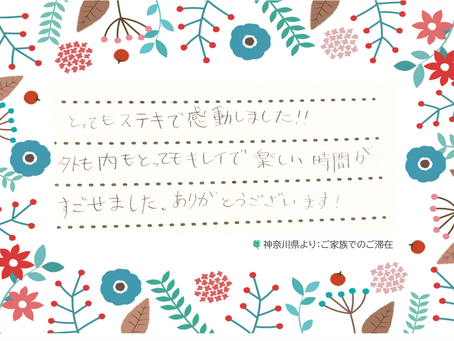 とってもステキで感動しました!!
外も内もとってもキレイで楽しい時間が
すごせました、ありがとうございます!
神奈川県より:ご家族でのご滞在